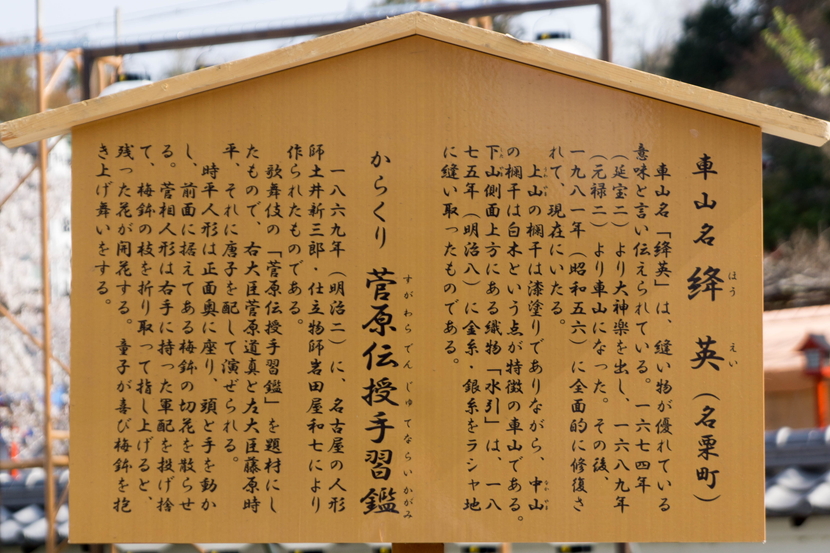 車山名 絳英 (名栗町)
ほう えい
車山名「絳英」は、縫い物が優れている
意味と言い伝えられている。一六七四年
(延宝二)より大神楽を出し、一六八九年
(元禄二)より車山になった。その後、
一九八一年(昭和五六)に全面的に修復さ
れて、現在にいたる。
上山の欄干は漆塗りでありながら、中山
の欄干は白木という点が特徴の車山である。
下山側面上方にある織物「水引」は、一八
七五年(明治八)に金糸・銀糸をラシャ地
に縫い取ったものである。
からくり 菅原伝授手習鑑
すがわらでんじゅてならいかがみ
一八六九年(明治二)に、名古屋の人形
師土井新三郎・仕立物師岩田屋和七により
作られたものである。
歌舞伎の「菅原伝授手習鑑」を題材にし
たもので、右大臣菅原道真と左大臣藤原時
平、それに唐子を配して演ぜられる。
時平人形は正面奥に座り、頭と手を動か
し、前面に据えてある梅鉢の切花を散らせ
る。菅相人形は右手に持った軍配を投げ捨
て、梅鉢の枝を折り取って指し上げると、
残った花が開花する。童子が喜び梅鉢を抱
き上げ舞いをする。